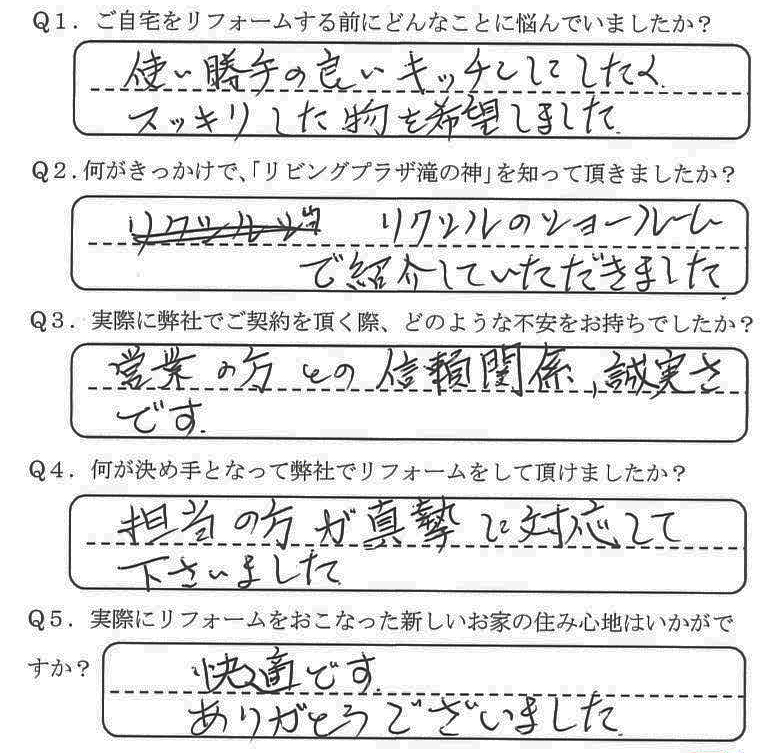 Q1．ご自宅をリフォームする前にどんなことに悩んでいましたか？
使い勝手の良いキッチンにしたく
スッキリした物を希望しました
Q2．何がきっかけで、「リビングプラザ滝の神」を知って頂きましたか？
リクシルのショールーム
で紹介していただきました
Q3．実際に弊社でご契約を頂く際、どのような不安をお持ちでしたか？
営業の方との信頼関係,誠実さ
です.
Q4．何が決め手となって弊社でリフォームをして頂けましたか？
担当の方が真摯に対応して
下さいました
Q5．実際にリフォームをおこなった新しいお家の住み心地はいかがで
すか？
快適です.
ありがとうございました